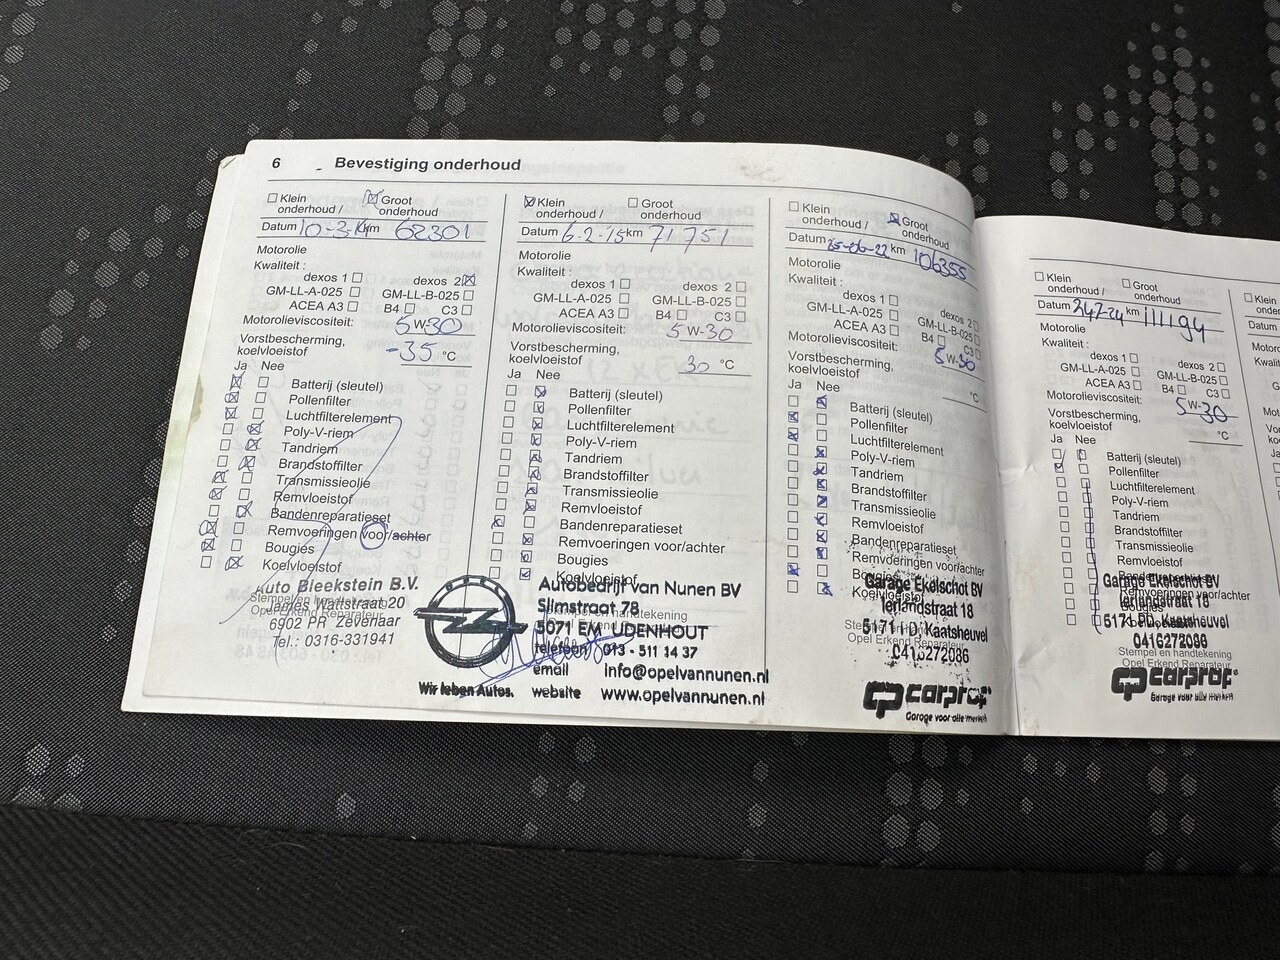 6
Bevestiging onderhoud
Klein onderhoud /
Groot onderhoud
Datum 10-3-14 km 62301
Motorolie
Kwaliteit :
dexos 1
dexos 2
GM-LL-A-025
GM-LL-B-025
ACEA A3
B4
C3
Motorolieviscositeit: 5 W-30
Vorstbescherming,
koelvloeistof -35 °C
Ja Nee
Batterij (sleutel)
Pollenfilter
Luchtfilterelement
Poly-V-riem
Tandriem
Brandstoffilter
Transmissieolie
Remvloeistof
Bandenreparatieset
Remvoeringen voor/achter
Bougies
Koelvloeistof
Stempel en handtekening
Opel Erkend Reparateur
Auto Bleekstein B.V.
James Wattstraat 20
6902 PR Zevenaar
Tel.: 0316-331941
Klein onderhoud /
Groot onderhoud
Datum 6-2-15 km 71751
Motorolie
Kwaliteit :
dexos 1
dexos 2
GM-LL-A-025
GM-LL-B-025
ACEA A3
B4
C3
Motorolieviscositeit: 5 W-30
Vorstbescherming,
koelvloeistof 30 °C
Ja Nee
Batterij (sleutel)
Pollenfilter
Luchtfilterelement
Poly-V-riem
Tandriem
Brandstoffilter
Transmissieolie
Remvloeistof
Bandenreparatieset
Remvoeringen voor/achter
Bougies
Koelvloeistof
Autobedrijf van Nunen BV
Slimstraat 78
5071 EM UDENHOUT
telefoon 013 - 511 14 37
email info@opelvannunen.nl
website www.opelvannunen.nl
Wir leben Autos.
Klein onderhoud /
Groot onderhoud
Datum 25-06-22 km 106355
Motorolie
Kwaliteit :
dexos 1
dexos 2
GM-LL-A-025
GM-LL-B-025
ACEA A3
B4
C3
Motorolieviscositeit: 5 W-30
Vorstbescherming,
koelvloeistof °C
Ja Nee
Batterij (sleutel)
Pollenfilter
Luchtfilterelement
Poly-V-riem
Tandriem
Brandstoffilter
Transmissieolie
Remvloeistof
Bandenreparatieset
Remvoeringen voor/achter
Bougies
Koelvloeistof
Stempel en handtekening
Opel Erkend Reparateur
Garage Ekelschot BV
Ierlandstraat 18
5171 PD, Kaatsheuvel
0416272086
carprof
Garage voor alle merken
Klein onderhoud /
Groot onderhoud
Datum km 111194
Motorolie
Kwaliteit :
dexos 1
dexos 2
GM-LL-A-025
GM-LL-B-025
ACEA A3
B4
C3
Motorolieviscositeit: 5 W-30
Vorstbescherming,
koelvloeistof °C
Ja Nee
Batterij (sleutel)
Pollenfilter
Luchtfilterelement
Poly-V-riem
Tandriem
Brandstoffilter
Transmissieolie
Remvloeistof
Bandenreparatieset
Remvoeringen voor/achter
Bougies
Koelvloeistof
Garage Ekelschot BV
Ierlandstraat 18
5171 PD, Kaatsheuvel
0416272086
Stempel en handtekening
Opel Erkend Reparateur
carprof
Garage voor alle merken